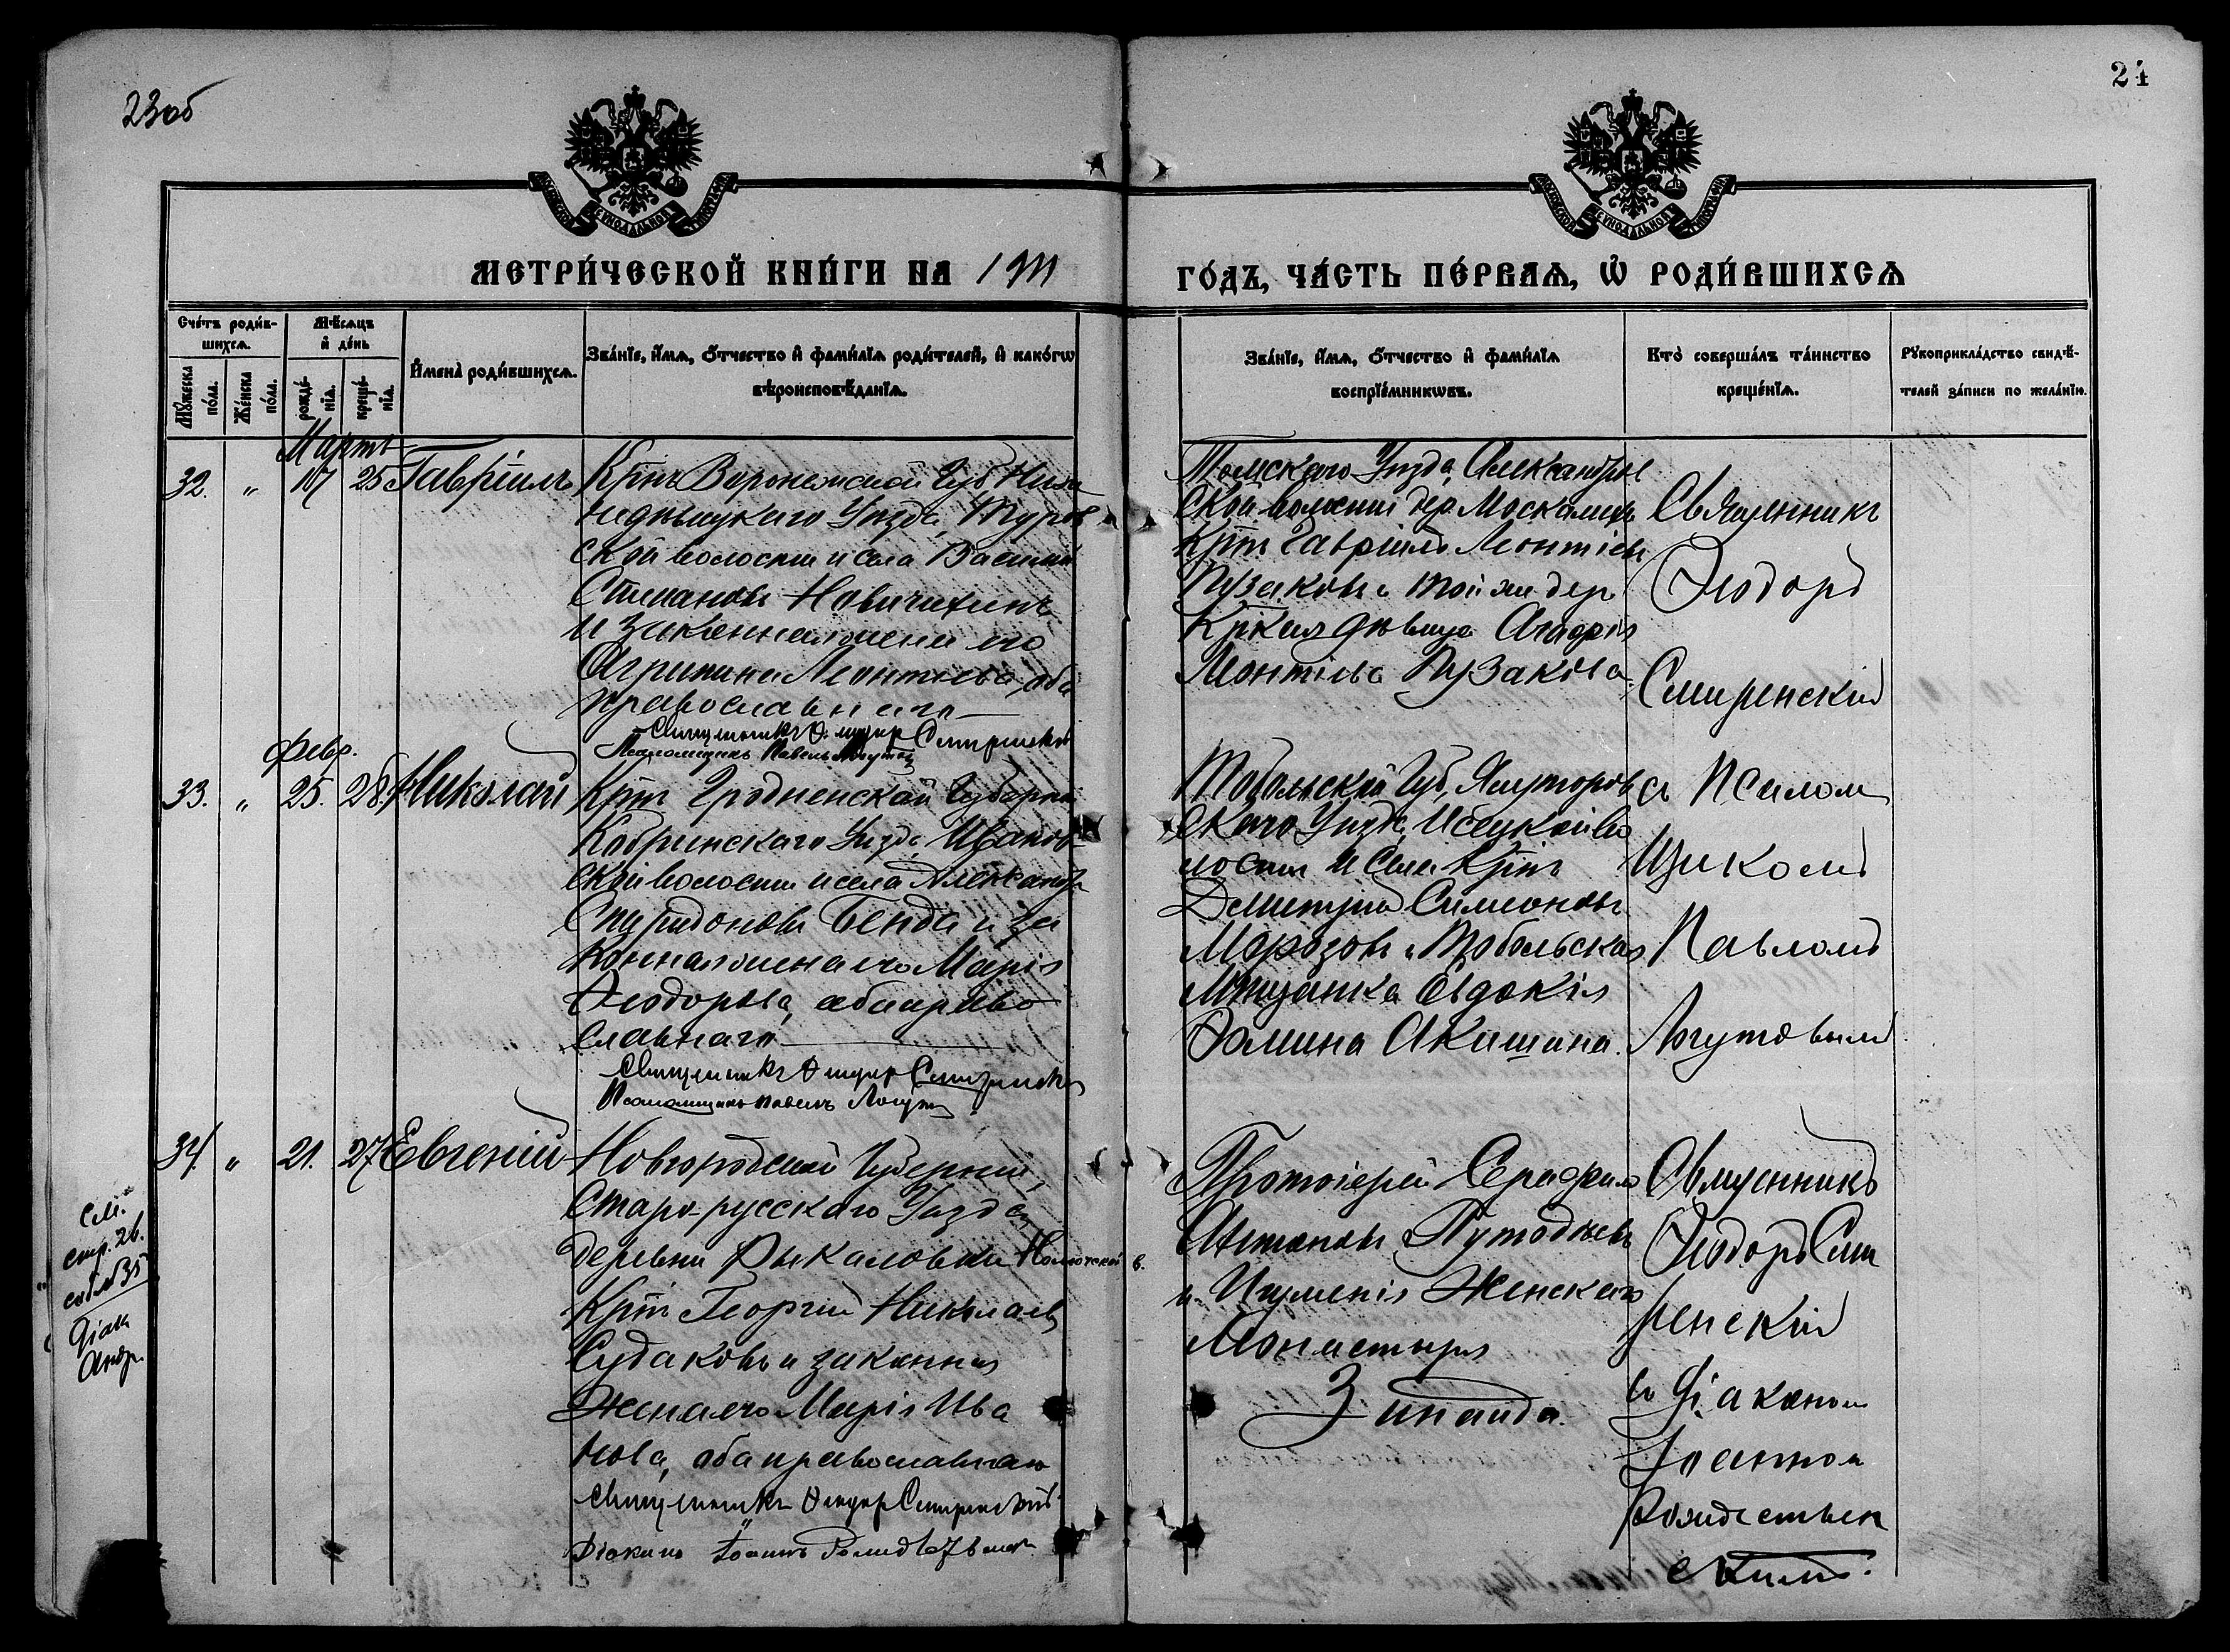 23об
24
МОСКОВСКОЙ СѴНОДАЛЬНОЙ ТИПОГРАФІИ
МОСКОВСКОЙ СѴНОДАЛЬНОЙ ТИПОГРАФІИ
МЕТРИ́ЧЕСКОЙ КНИ́ГИ НА 1911
ГО́ДЪ, ЧА́СТЬ ПЕ́РВАѦ, Ѡ҆ РОДИ́ВШИХСѦ
Сче́тъ роди́в-
шихсѧ.
Мꙋ́жеска
по́ла.
Же́нска
по́ла.
Мѣ́сѧцъ
и҆ де́нь
рожде́-
нїѧ.
креще́-
нїѧ.
И҆мена̀ роди́вшихсѧ.
Зва́нїе, и҆́мѧ, ѻ҆́тчество и҆ фами́лїѧ роди́телей, и҆ како́гѡ
вѣроисповѣ́данїѧ.
Зва́нїе, и҆́мѧ, ѻ҆́тчество и҆ фами́лїѧ
воспрїе́мникѡвъ.
Кто̀ соверша́лъ та́инство
креще́нїѧ.
Рꙋкоприкла́дство свидѣ́-
телей за́писи по жела́нїю.
Мартъ
32. „ 17 25 Гавріилъ
Крт҃нъ Воронежской Губ Ниж
недѣвицкаго Уѣзда, Туров
ской волости и села Василій
Стефановъ Новичихинъ
и законная жена его
Агрипина Леонтіева, оба
православнаго
Священникъ Ѳеодоръ Смиренскій
Псаломщикъ Павелъ Логутовъ
Томскаго Уѣзда, Александров
ской волости дер
Крт҃нъ Гавріилъ Леонтіевъ
Пузаковъ и той же дер
Крт҃кая дѣвица Агафія
Леонтіева Пузакова.
Священникъ
Ѳеодоръ
Смиренскій
Февр.
33. „ 25. 28. Николай
Крт҃нъ Гродненской Губерніи
Кобринскаго Уѣзда, Иванов-
ской волости и села Александръ
Спиридоновъ Бенда и за
конная жена его Марія
Ѳеодорова, оба право
славнаго
Священникъ Ѳеодоръ Смиренскій
Псаломщикъ Павелъ Логутовъ
Тобольской Губ, Ялуторов
скаго Уѣзда, Исецкой во
лости и села Крт҃нъ
Димитрій Симеоновъ
Морозовъ и Тобольская
Мѣщанка Евдокія
Ѳомина Акишина.
съ Псалом
щикомъ
Павломъ
Логутовымъ
34. „ 21. 27 Евгеній
Новгородской Губерніи,
Старо-русскаго Уѣзда
деревни Рыкаловки в.
Крт҃нъ Георгій Николаевъ
Судаковъ и законная
жена его Марія Ива
нова, оба православнаго
Священникъ Ѳеодоръ Смиренскій
Діаконъ Іоаннъ Рождественскій
Протоіерей Серафимъ
Антоновъ Путодѣевъ
и Игуменія Женскаго
Монастыря
Зинаида.
Священникъ
Ѳеодоръ Сми
ренскій
съ Діаконом
Іоанном
Рождествен
скимъ.
см.
стр. 26.
об №35
Діак
Андр.